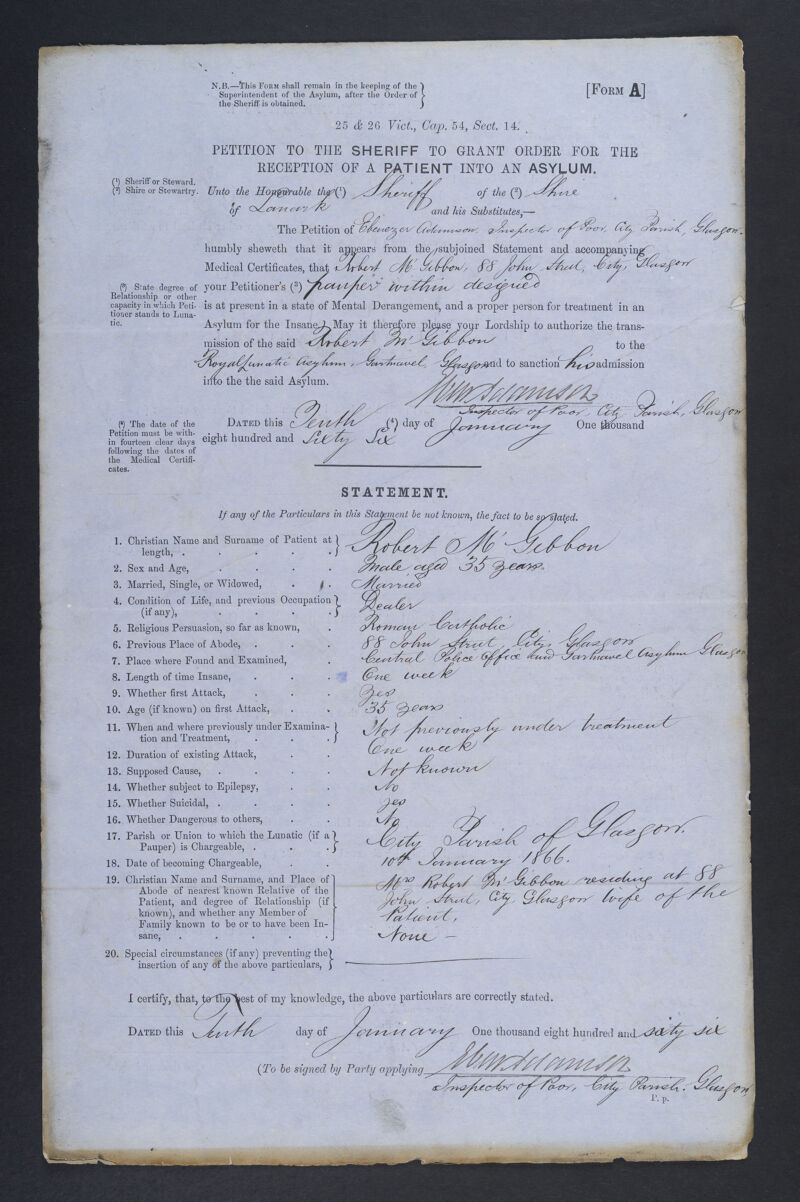 N.B.—This Form shall remain in the keeping of the
Superintendent of the Asylum, after the Order of
the Sheriff is obtained.
[Form A]
25 & 26 Vict., Cap. 54, Sect. 14.
PETITION TO THE SHERIFF TO GRANT ORDER FOR THE
RECEPTION OF A PATIENT INTO AN ASYLUM.
(¹) Sheriff or Steward.
(²) Shire or Stewartry.
Unto the Honourable the (¹) Sheriff of the (²) Shire
of Lanark and his Substitutes,—
The Petition of Ebenezer Adamson, Inspector of Poor, City Parish, Glasgow.
humbly sheweth that it appears from the subjoined Statement and accompanying
Medical Certificates, that Robert McGibbon, 88 John Street, City, Glasgow
(³) State degree of
Relationship or other
capacity in which Peti-
tioner stands to Luna-
tic.
your Petitioner's (³) pauper within designed
is at present in a state of Mental Derangement, and a proper person for treatment in an
Asylum for the Insane. May it therefore please your Lordship to authorize the trans-
mission of the said Robert McGibbon to the
Royal Lunatic Asylum, Gartnavel, Glasgow and to sanction his admission
into the the said Asylum.
Eben Adamson
Inspector of Poor, City Parish, Glasgow
(⁴) The date of the
Petition must be with-
in fourteen clear days
following the dates of
the Medical Certifi-
cates.
Dated this Tenth (⁴) day of January One thousand
eight hundred and Sixty Six
STATEMENT.
If any of the Particulars in this Statement be not known, the fact to be so stated.
1. Christian Name and Surname of Patient at
length, . Robert McGibbon
2. Sex and Age, Male aged 35 years.
3. Married, Single, or Widowed, Married
4. Condition of Life, and previous Occupation
(if any), Dealer
5. Religious Persuasion, so far as known, Roman Catholic
6. Previous Place of Abode, 88 John Street, City, Glasgow
7. Place where Found and Examined, Central Police Office and Gartnavel Asylum Glasgow
8. Length of time Insane, One week
9. Whether first Attack, Yes
10. Age (if known) on first Attack, 35 years
11. When and where previously under Examina-
tion and Treatment, Not previously under treatment
12. Duration of existing Attack, One week
13. Supposed Cause, Not known
14. Whether subject to Epilepsy, No
15. Whether Suicidal, Yes
16. Whether Dangerous to others, No
17. Parish or Union to which the Lunatic (if a
Pauper) is Chargeable, City Parish of Glasgow.
18. Date of becoming Chargeable, 10th January 1866.
19. Christian Name and Surname, and Place of
Abode of nearest known Relative of the
Patient, and degree of Relationship (if
known), and whether any Member of
Family known to be or to have been In-
sane,
Mrs Robert McGibbon residing at 88
John Street, City, Glasgow wife of the
Patient.
None —
20. Special circumstances (if any) preventing the
insertion of any of the above particulars,
I certify, that, to the best of my knowledge, the above particulars are correctly stated.
Dated this Tenth day of January One thousand eight hundred and sixty six
(To be signed by Party applying Eben Adamson
Inspector of Poor, City Parish, Glasgow
P. p.